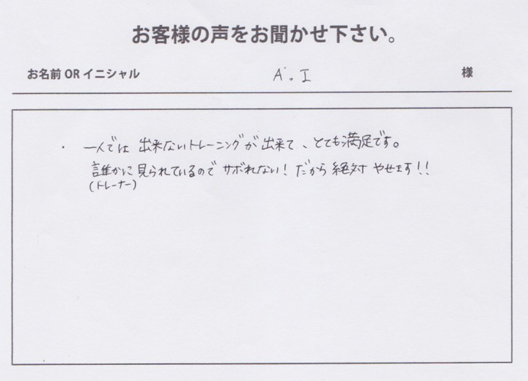 お客様の声をお聞かせ下さい。
お名前 OR イニシャル A.I 様
・ 一人では 出来ないトレーニングが 出来て、とても満足です。
誰かに 見られているので サボれない! だから 絶対 やせます!!
(トレーナー)